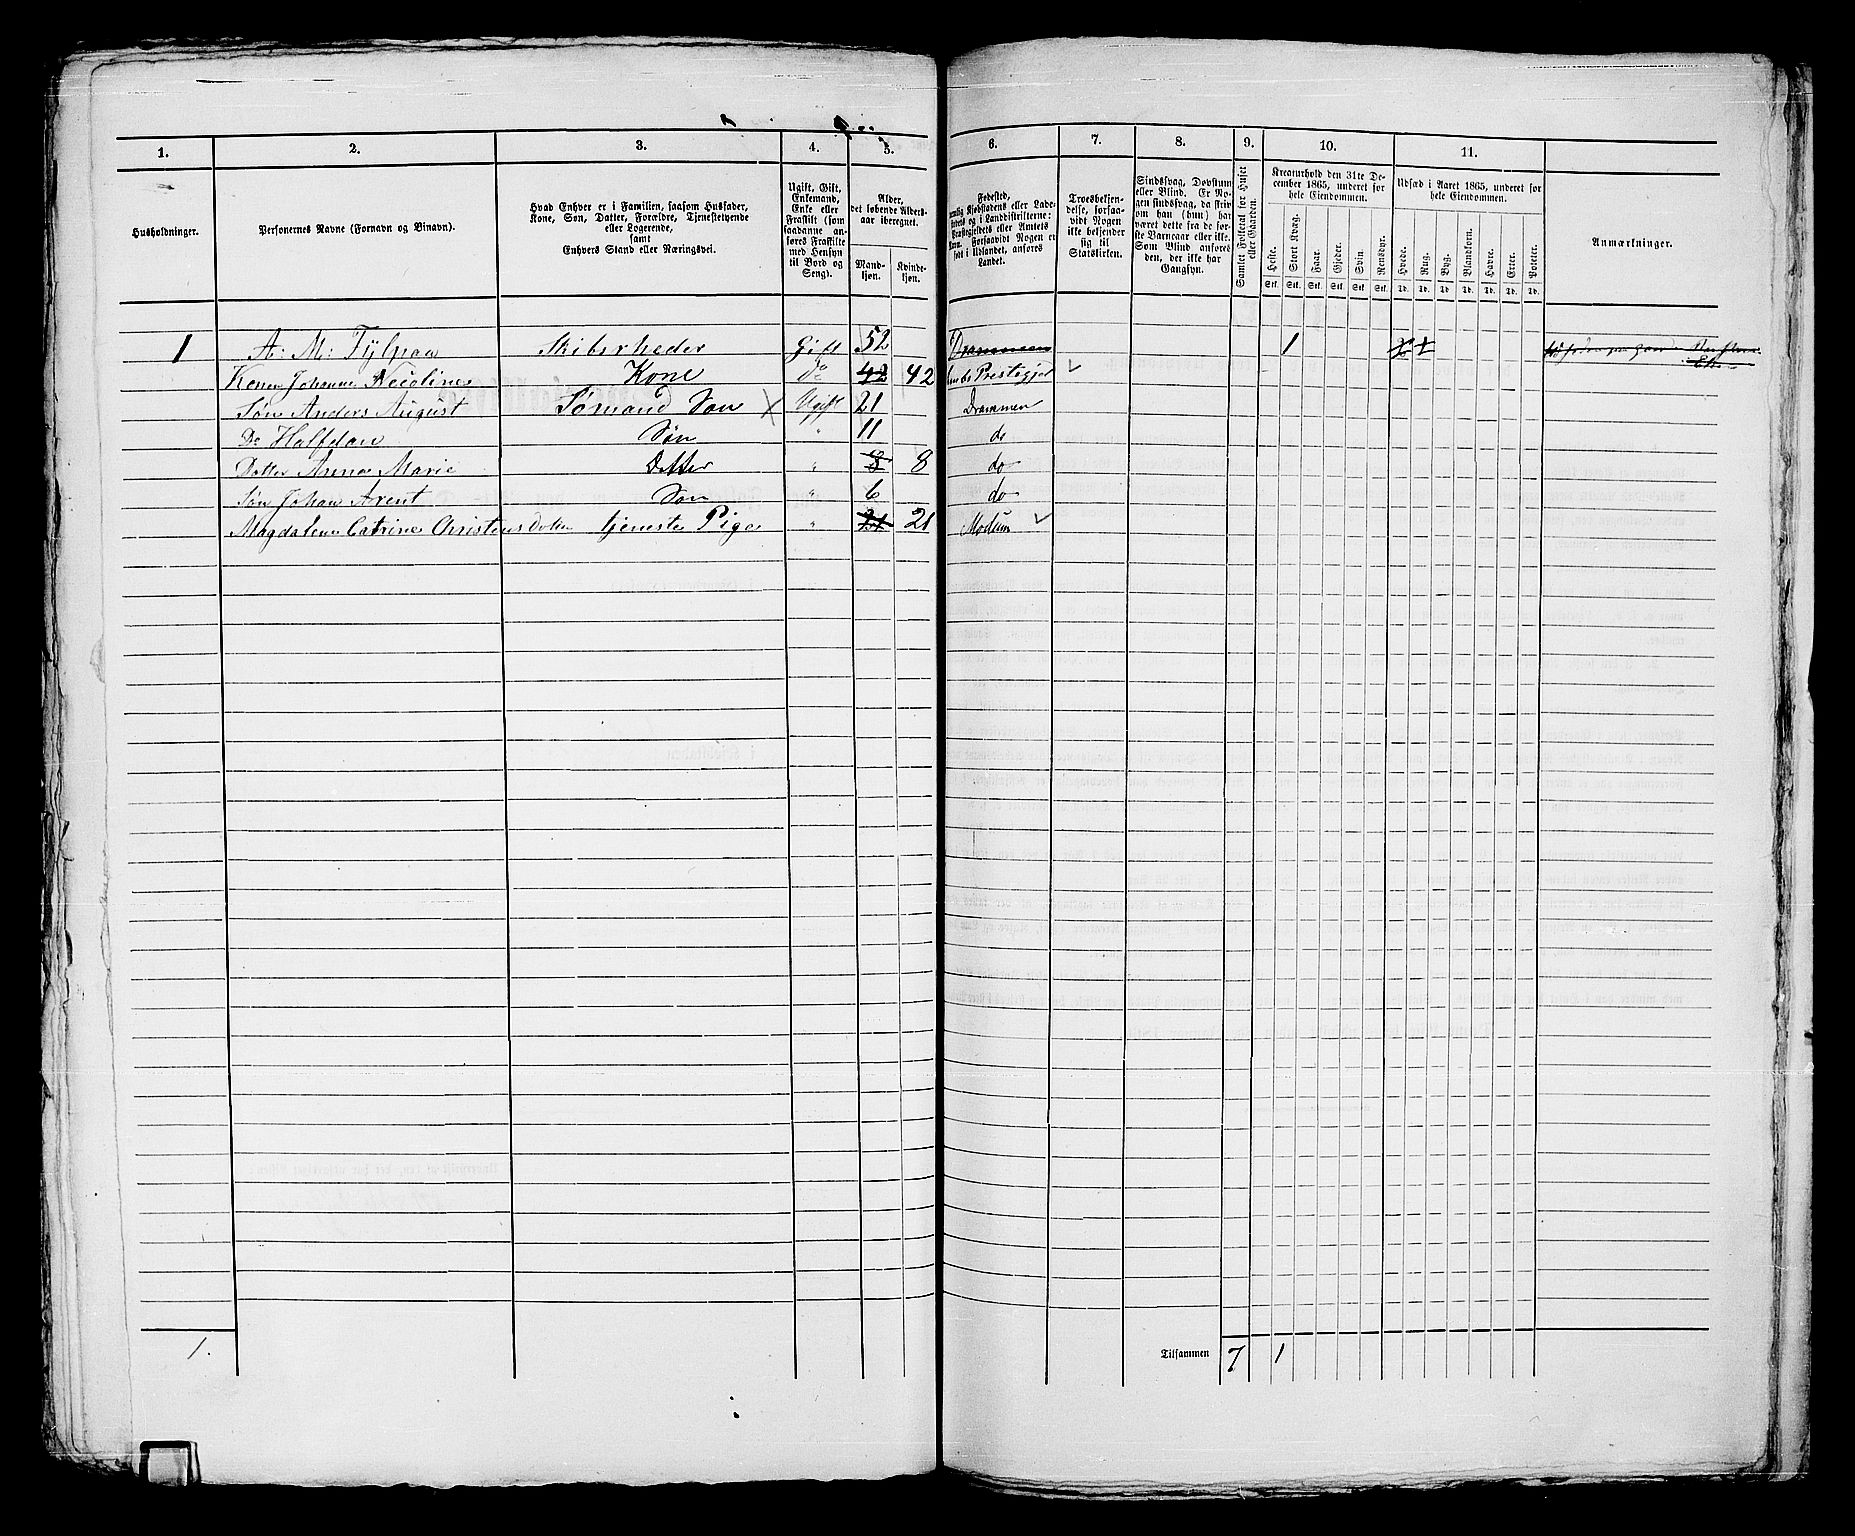 1. 2. 3. 4. 5. 6. 7. 8. 9. 10. 11.
Husholdninger.
Personernes Navne (Fornavn og Binavn).
Hvad Enhver er i Familien, saasom Husfader,
Kone, Søn, Datter, Forældre, Tjenestetyende
eller Logerende,
samt
Enhvers Stand eller Næringsvei.
Ugift, Gift,
Enkemand,
Enke eller
Fraskilt (som
saadanne an-
føres Fraskilte
med Hensyn
til Bord og
Seng).
Alder,
det løbende Alders-
aar iberegnet.
Mand-
kjøn.
Kvinde-
kjøn.
Fødested,
Landet.
Troesbekjen-
delse, forsaa-
vidt Nogen
ikke bekjender
sig til
Statskirken.
Sindssvag, Døvstum
eller Blind. Er No-
gen sindssvag, da skriv
om han (hun) har
været dette fra de før-
ste Barneaar eller ikke.
Som Blind anføres
den, der ikke har
Gangsyn.
Gamlet Folketal for Huset
eller Gaarden.
Kreaturhold den 31te De-
cember 1865, underet for
hele Eiendommen.
Heste. Stort Kvæg. Faar. Gjeder. Svin Rensdyr.
Stk. Stk. Stk. Stk. Stk. Stk.
Udsæd i Aaret 1865, underet for
hele Eiendommen.
Hvede. Rug. Byg. Blandkorn. Havre. Erter. Poteter.
Td. Td. Td. Td. Td. Td. Td.
Anmærkninger.
1 A: M: Skibsrheder Gift 52 Drammen 1
Konen Johanne Nicoline Kone do 42 42 Prestegjel
Søn Anders August Sømand Søn Ugift 21 Drammen
Do Halfdan Søn " 11 do
Dotter Anna Marie Dotter " 8 8 do
Søn Johan Arent Søn " 6 do
Magdalene Catrine Christens Dotter tjeneste Pige " 21 21 Modum
1. Tilsammen 7 1